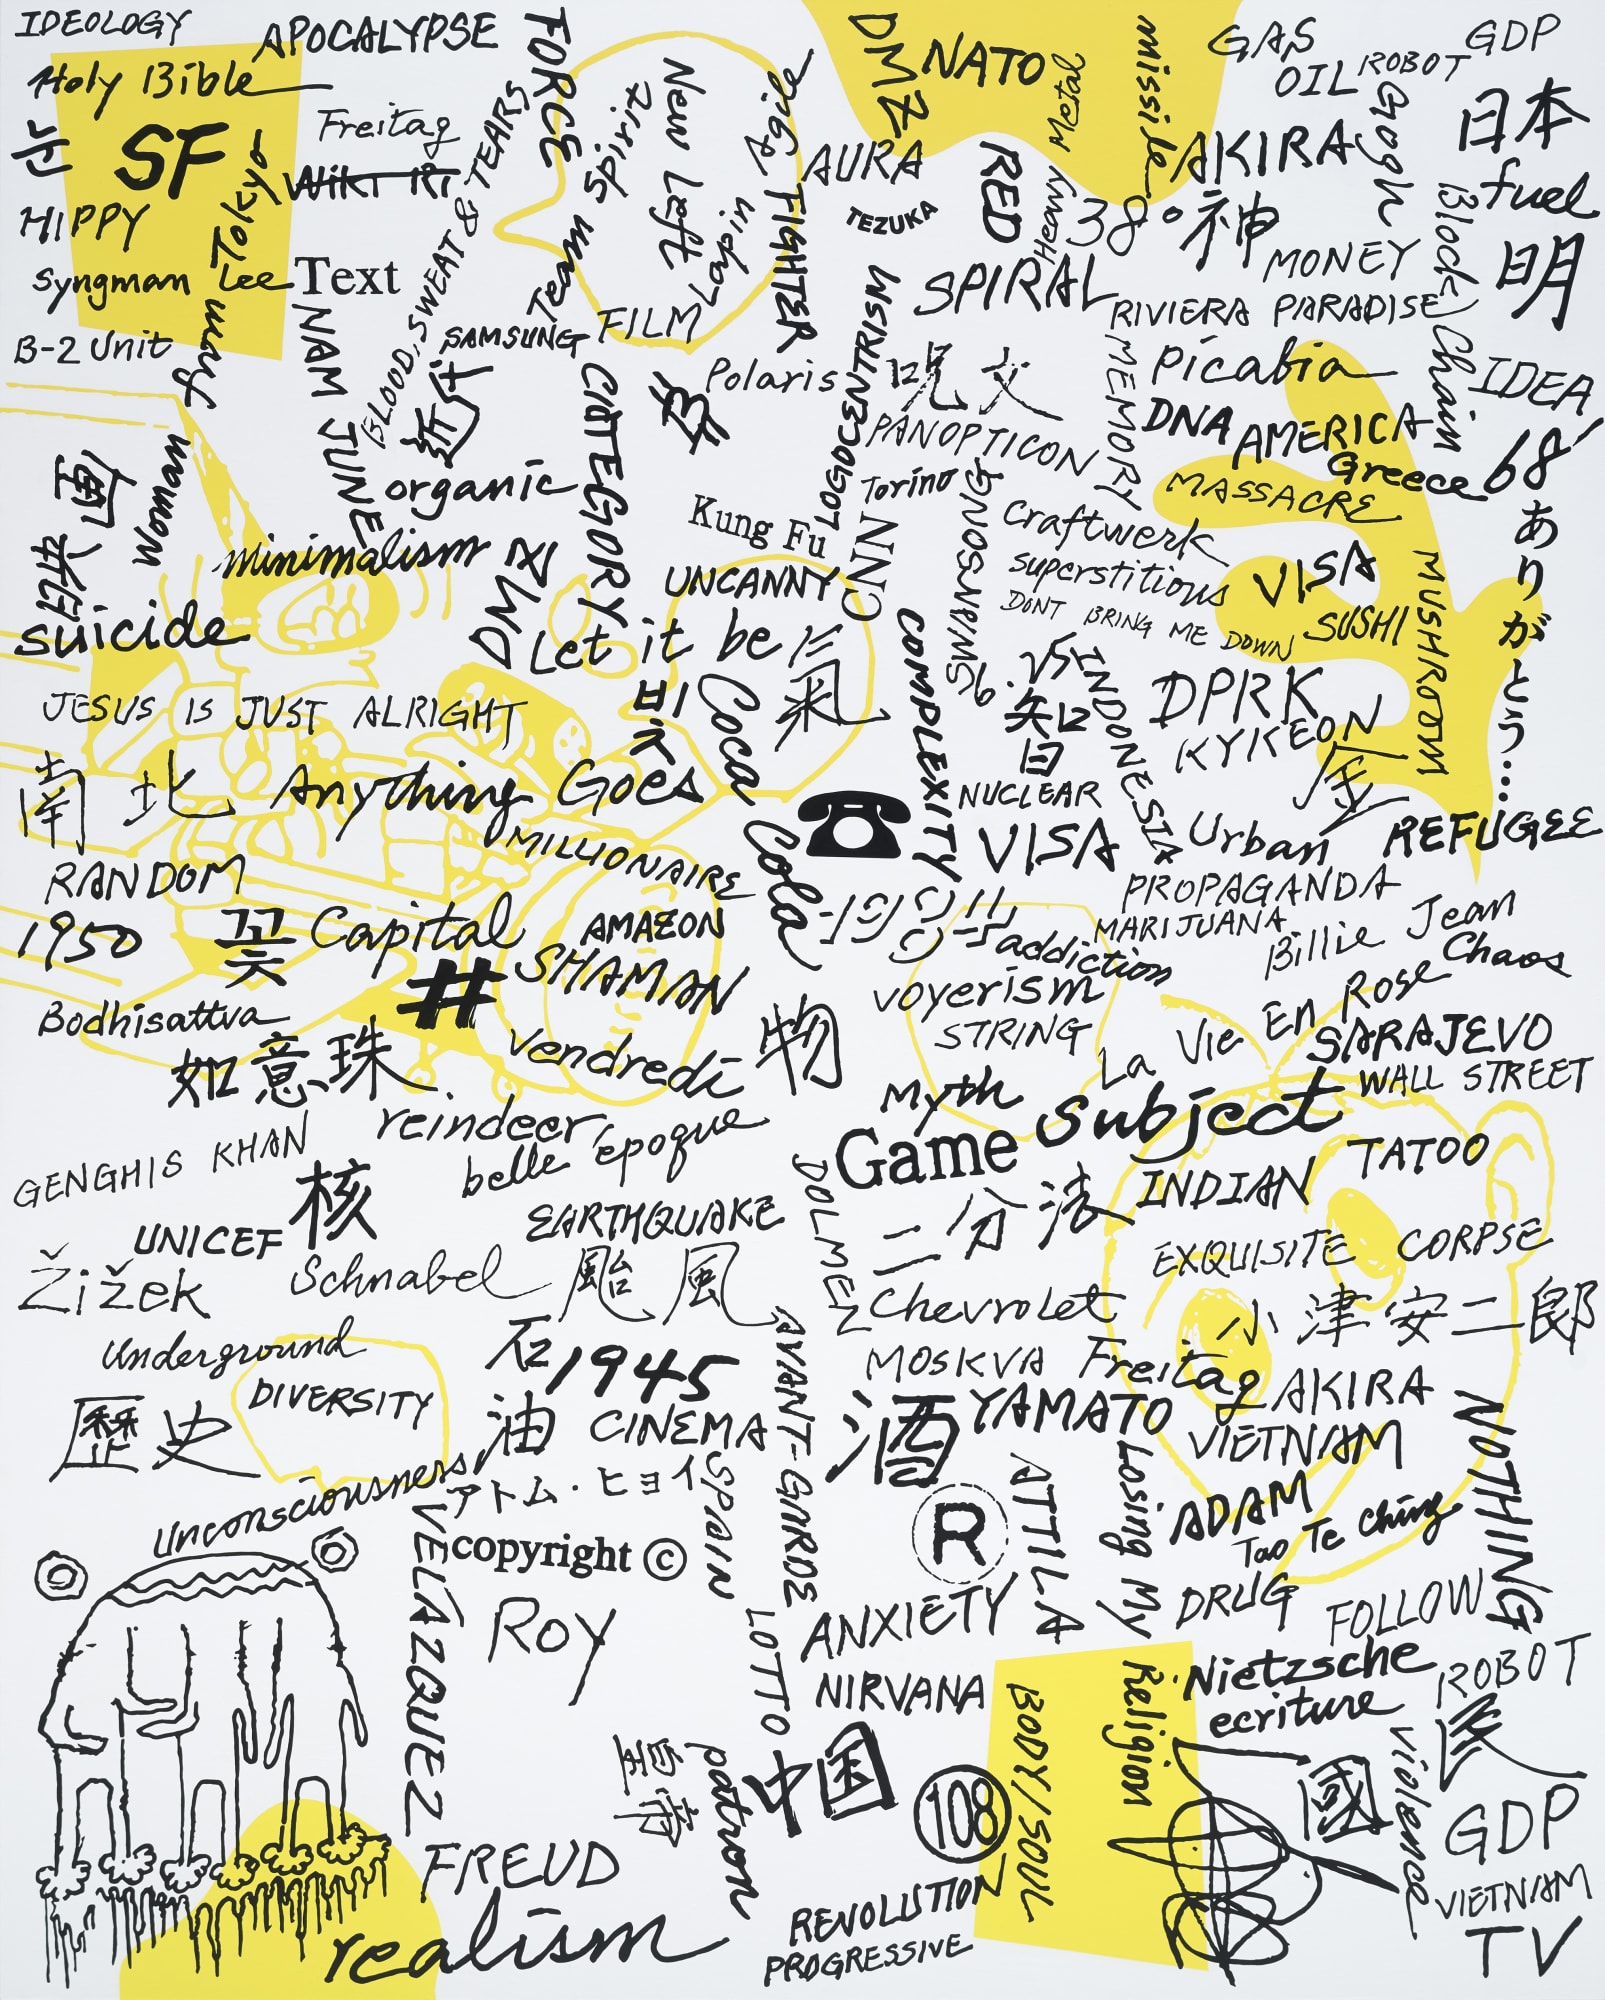 IDEOLOGY
APOCALYPSE
FORCE
DMZ
NATO
Heavy Metal
missile
GAS
OIL
ROBOT
GDP
Holy Bible
눈
SF
Freitag
WiKi Ri
BLOOD, SWEAT & TEARS
Team Spirit
New Left
Agile
FIGHTER
AURA
TEZUKA
RED
38°
AKIRA
神
Gogh
日本
fuel
HIPPY
Tokyo
Syngman Lee
Text
SAMSUNG
FILM
Lapin
SPIRAL
MONEY
RIVIERA PARADISE
Block Chain
明
B-2 Unit
many
woman
NAM JUNE
CATEGORY
Polaris
LOGOCENTRISM
呪文
MEMORY
Picabia
IDEA
DNA
AMERICA
Greece
68'
PANOPTICON
MASSACRE
organic
Torino
SWANSONG
Kung Fu
CNN
Craftwerk
superstitious
DON'T BRING ME DOWN
VISA
SUSHI
MUSHROOM
ありがとう...
minimalism
DMZ
UNCANNY
suicide
Let it be
COMPLEXITY
INDONESIA
DPRK
KYKEON
JESUS IS JUST ALRIGHT
Coca Cola
南北
Anything Goes
NUCLEAR
VISA
Urban
REFUGEE
MILLIONAIRE
RANDOM
PROPAGANDA
MARIJUANA
Billie Jean
1950
꽃
Capital
AMAZON
SHAMAN
#
addiction
voyerism
STRING
Chaos
La Vie En Rose
SARAJEVO
WALL STREET
Bodhisattva
如意珠
Vendredi
物
Myth
Subject
reindeer
belle époque
Game
TATOO
GENGHIS KHAN
核
DOLMEN
二分法
INDIAN
UNICEF
EARTHQUAKE
EXQUISITE CORPSE
Žižek
Schnabel
颱風
Chevrolet
小津安二郎
Underground
石油
1945
AVANT-GARDE
MOSKVA
Freitag
AKIRA
DIVERSITY
歷史
CINEMA
酒
YAMATO
VIETNAM
NOTHING
Unconsciousness
アトム・ヒョイ
SPAIN
R
ATTILA
Losing My Religion
ADAM
Tao Te Ching
VELÁZQUEZ
copyright ©
Roy
LOTTO
ANXIETY
DRUG
FOLLOW
NIRVANA
Nietzsche
ecriture
ROBOT
BODY/SOUL
patron
中国
108
國
violence
GDP
FREUD
REVOLUTION
VIETNAM
realism
PROGRESSIVE
TV